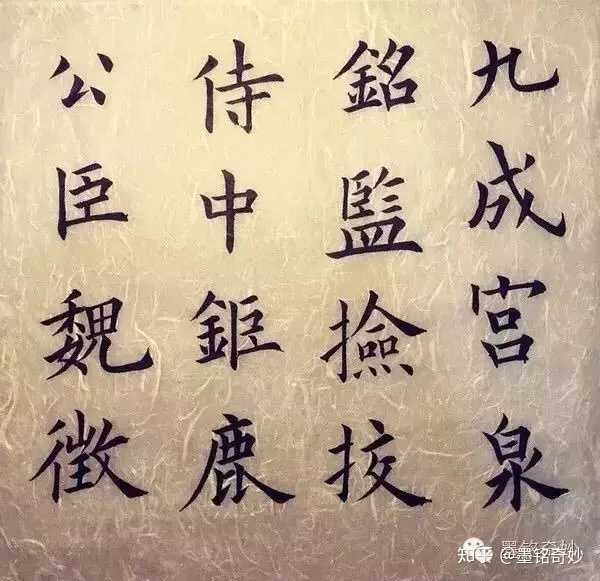 九成宮泉
銘監撿挍
侍中鉅鹿
公臣魏徵
墨铭奇妙
知乎 @墨铭奇妙